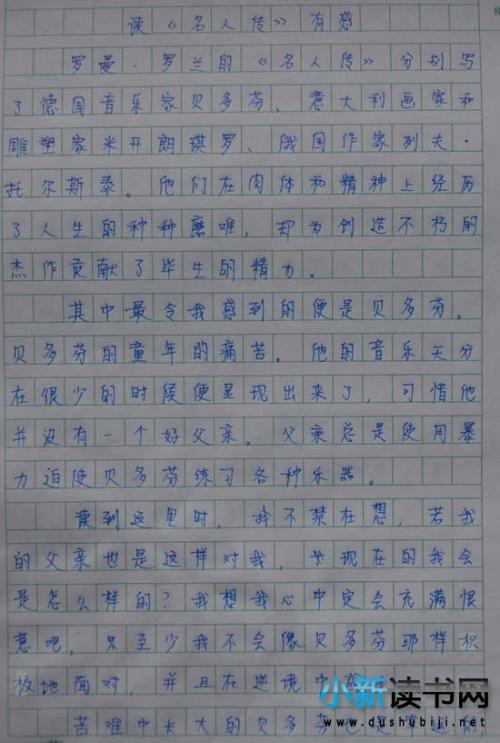 读《名人传》有感
罗曼·罗兰的《名人传》分别写
了德国音乐家贝多芬、意大利画家和
雕塑家米开朗琪罗、俄国作家列夫·
托尔斯泰。他们在肉体和精神上经历
了人生的种种磨难，却为创造不朽的
杰作贡献了毕生的精力。
其中最令我感到的便是贝多芬。
贝多芬的童年的痛苦。他的音乐天分
在很少的时候便呈现出来了，可惜他
并没有一个好父亲。父亲总是使用暴
力迫使贝多芬练习各种乐器。
读到这里时，我不禁在想，若我
的父亲也是这样对我，现在的我会
是怎么样的？我想我心中定会充满恨
意吧，至少我不会像贝多芬那样积
极地面对，并且在逆境中
苦难中长大的贝多芬也是
小新读书网
www.dushubiji.net